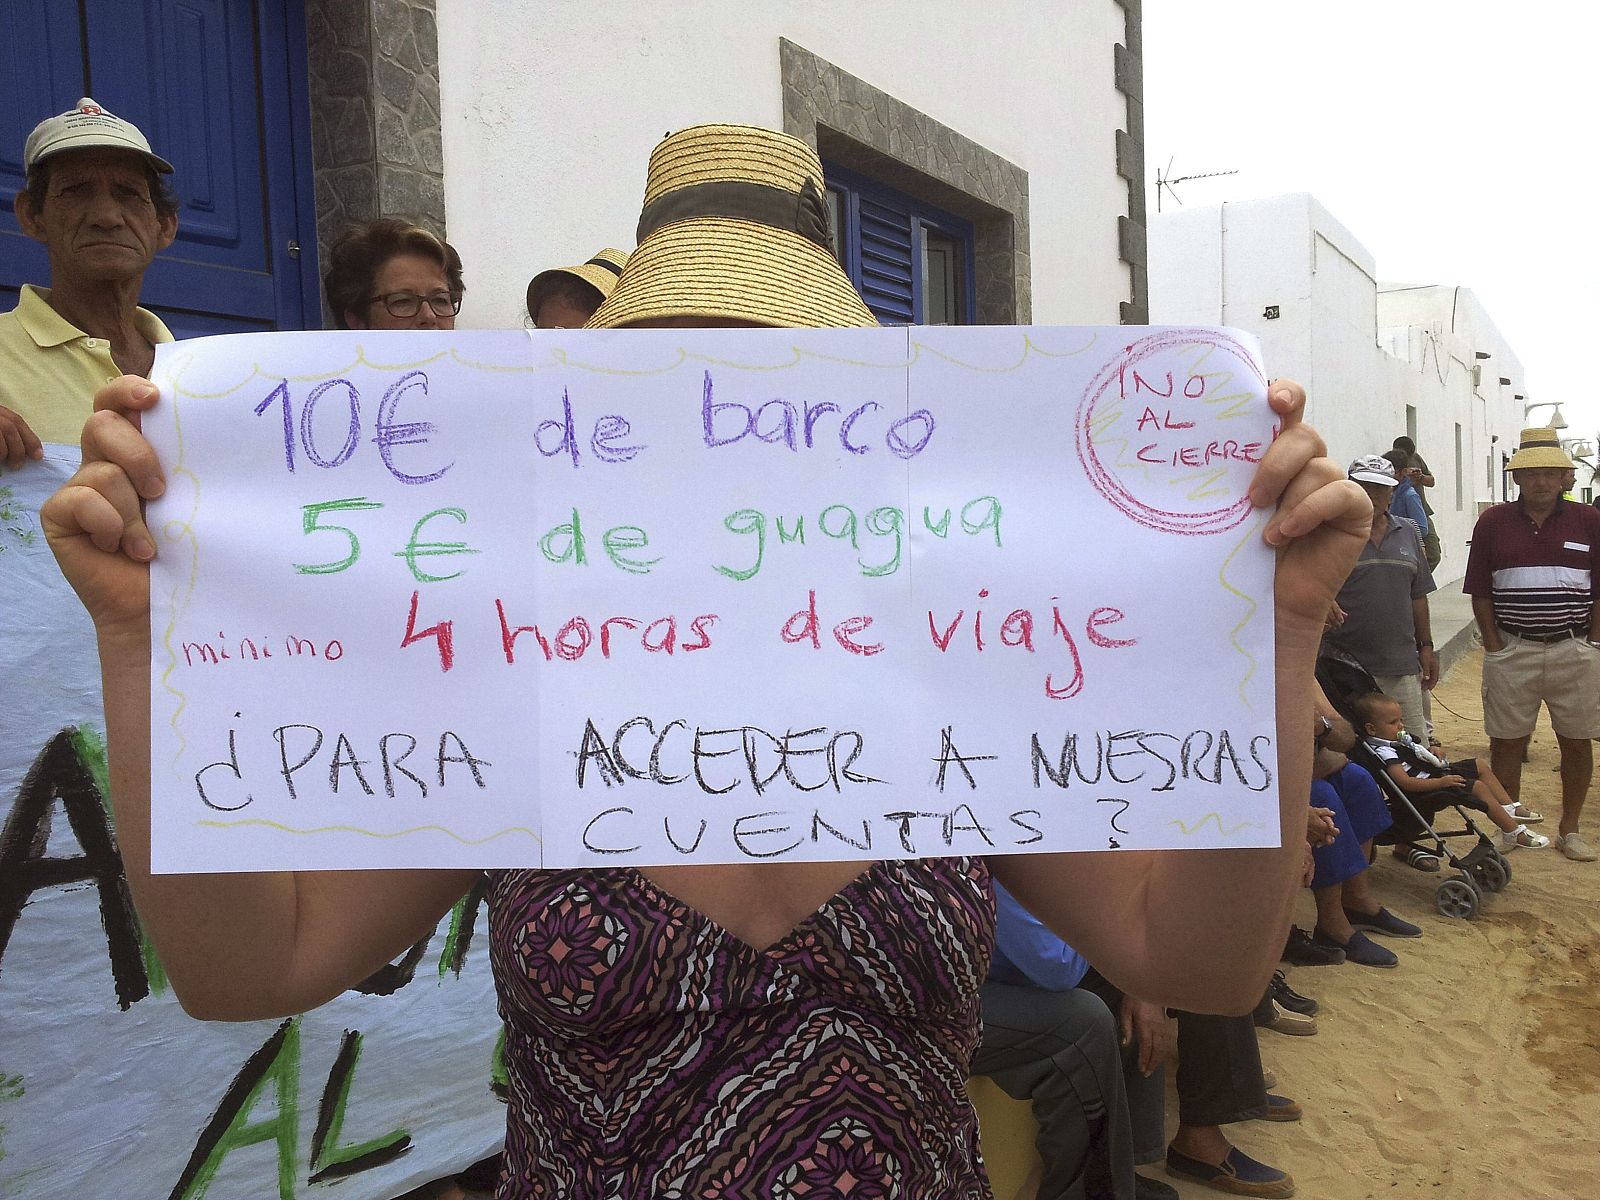 10€ de barco
¡NO
AL
CIERRE!
5€ de guagua
minimo 4 horas de viaje
¿PARA ACCEDER A NUESRAS
CUENTAS?
AL